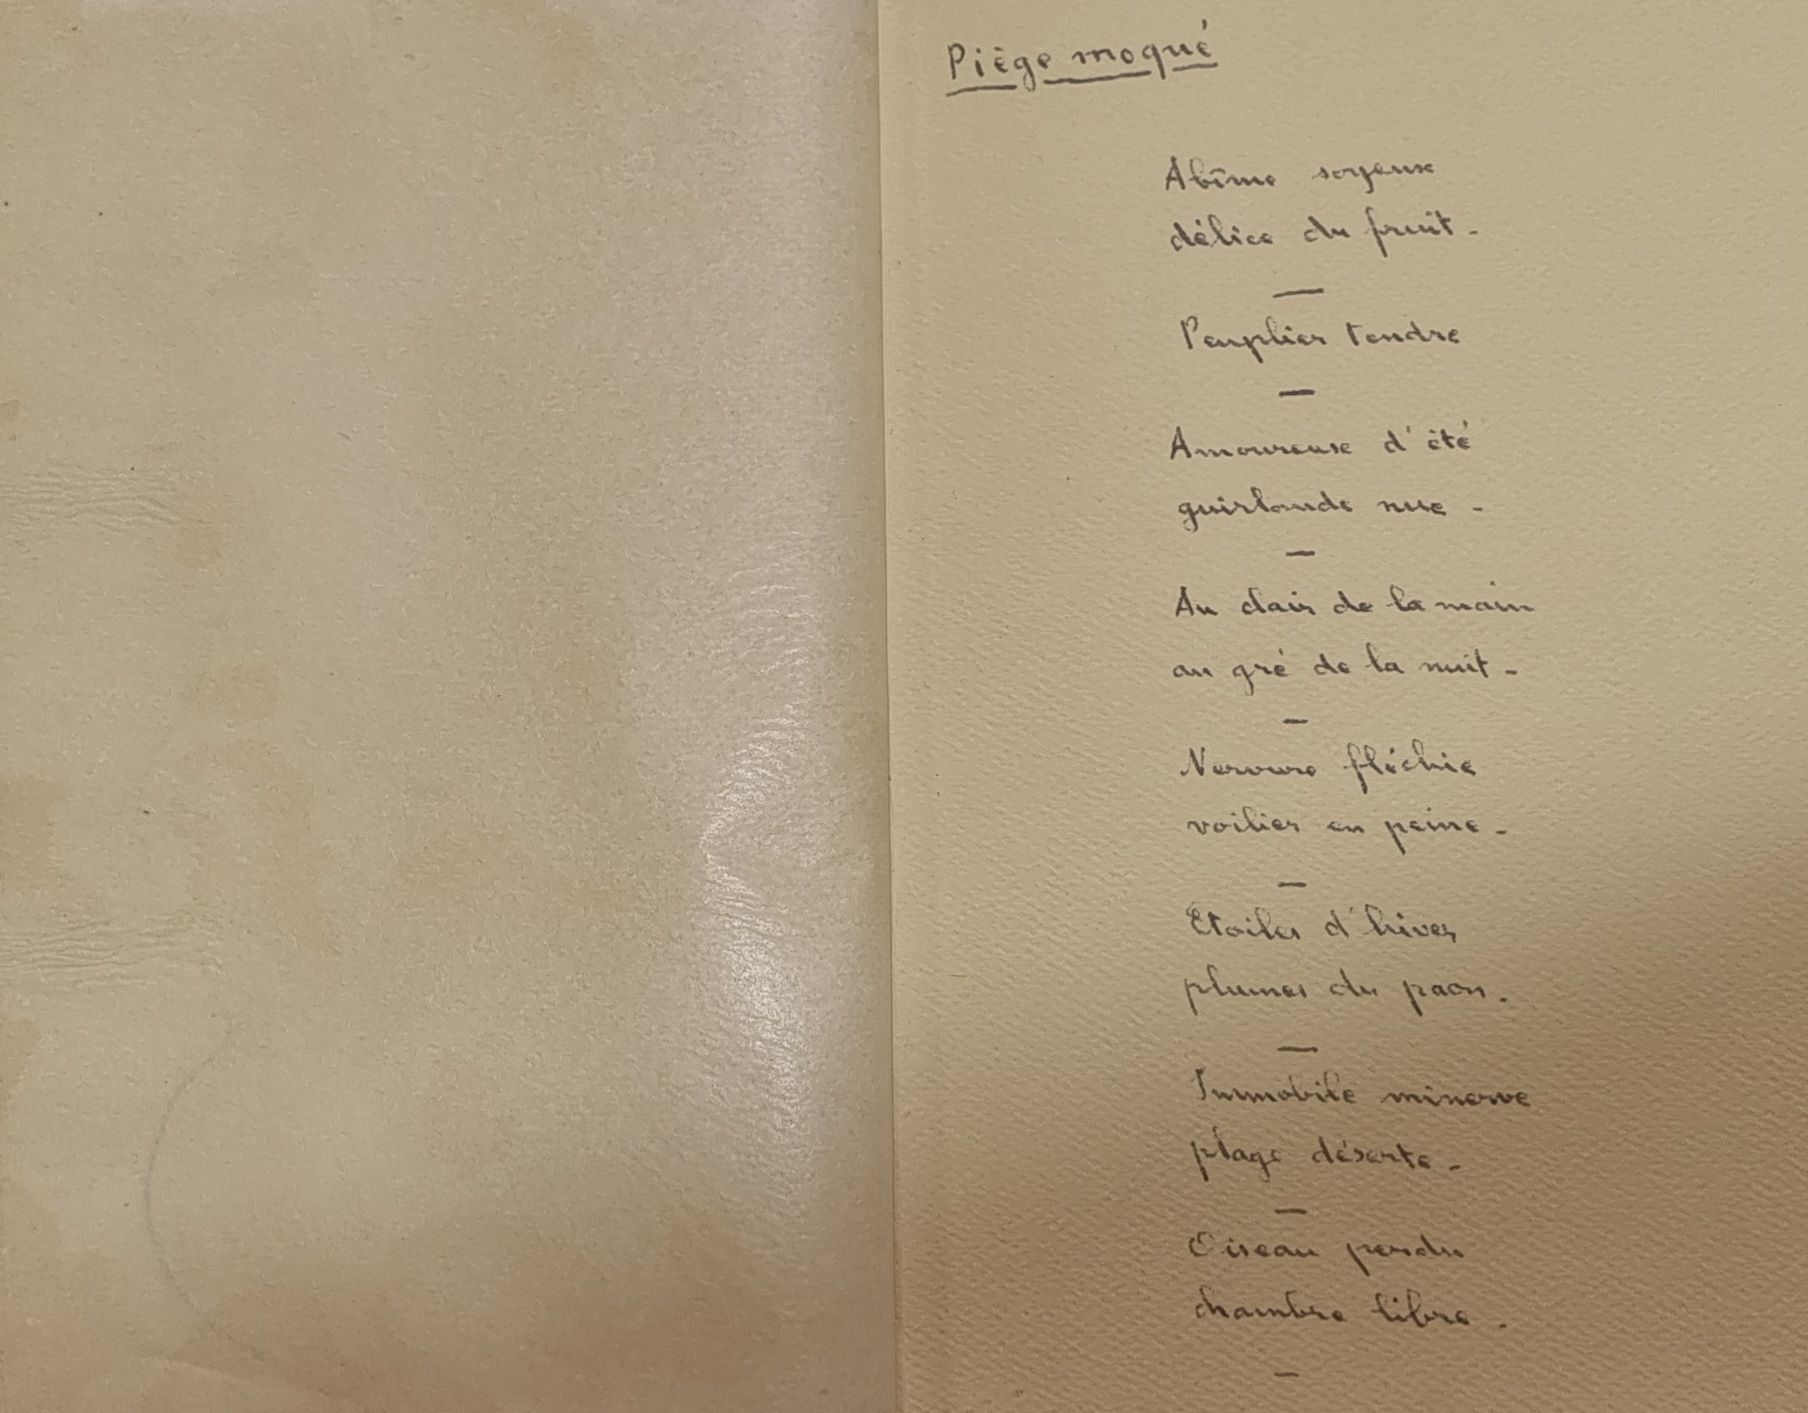 Piège moqué
Abîme soyeux
délice du fruit -
—
Peuplier tendre
—
Amoureuse d'été
guirlande nue -
—
Au clair de la main
au gré de la nuit -
—
Nervure fléchie
voilier en peine -
—
Etoiles d'hiver
plumes du paon.
—
Immobile minerve
plage déserte -
—
Oiseau perdu
chambre libre.
—